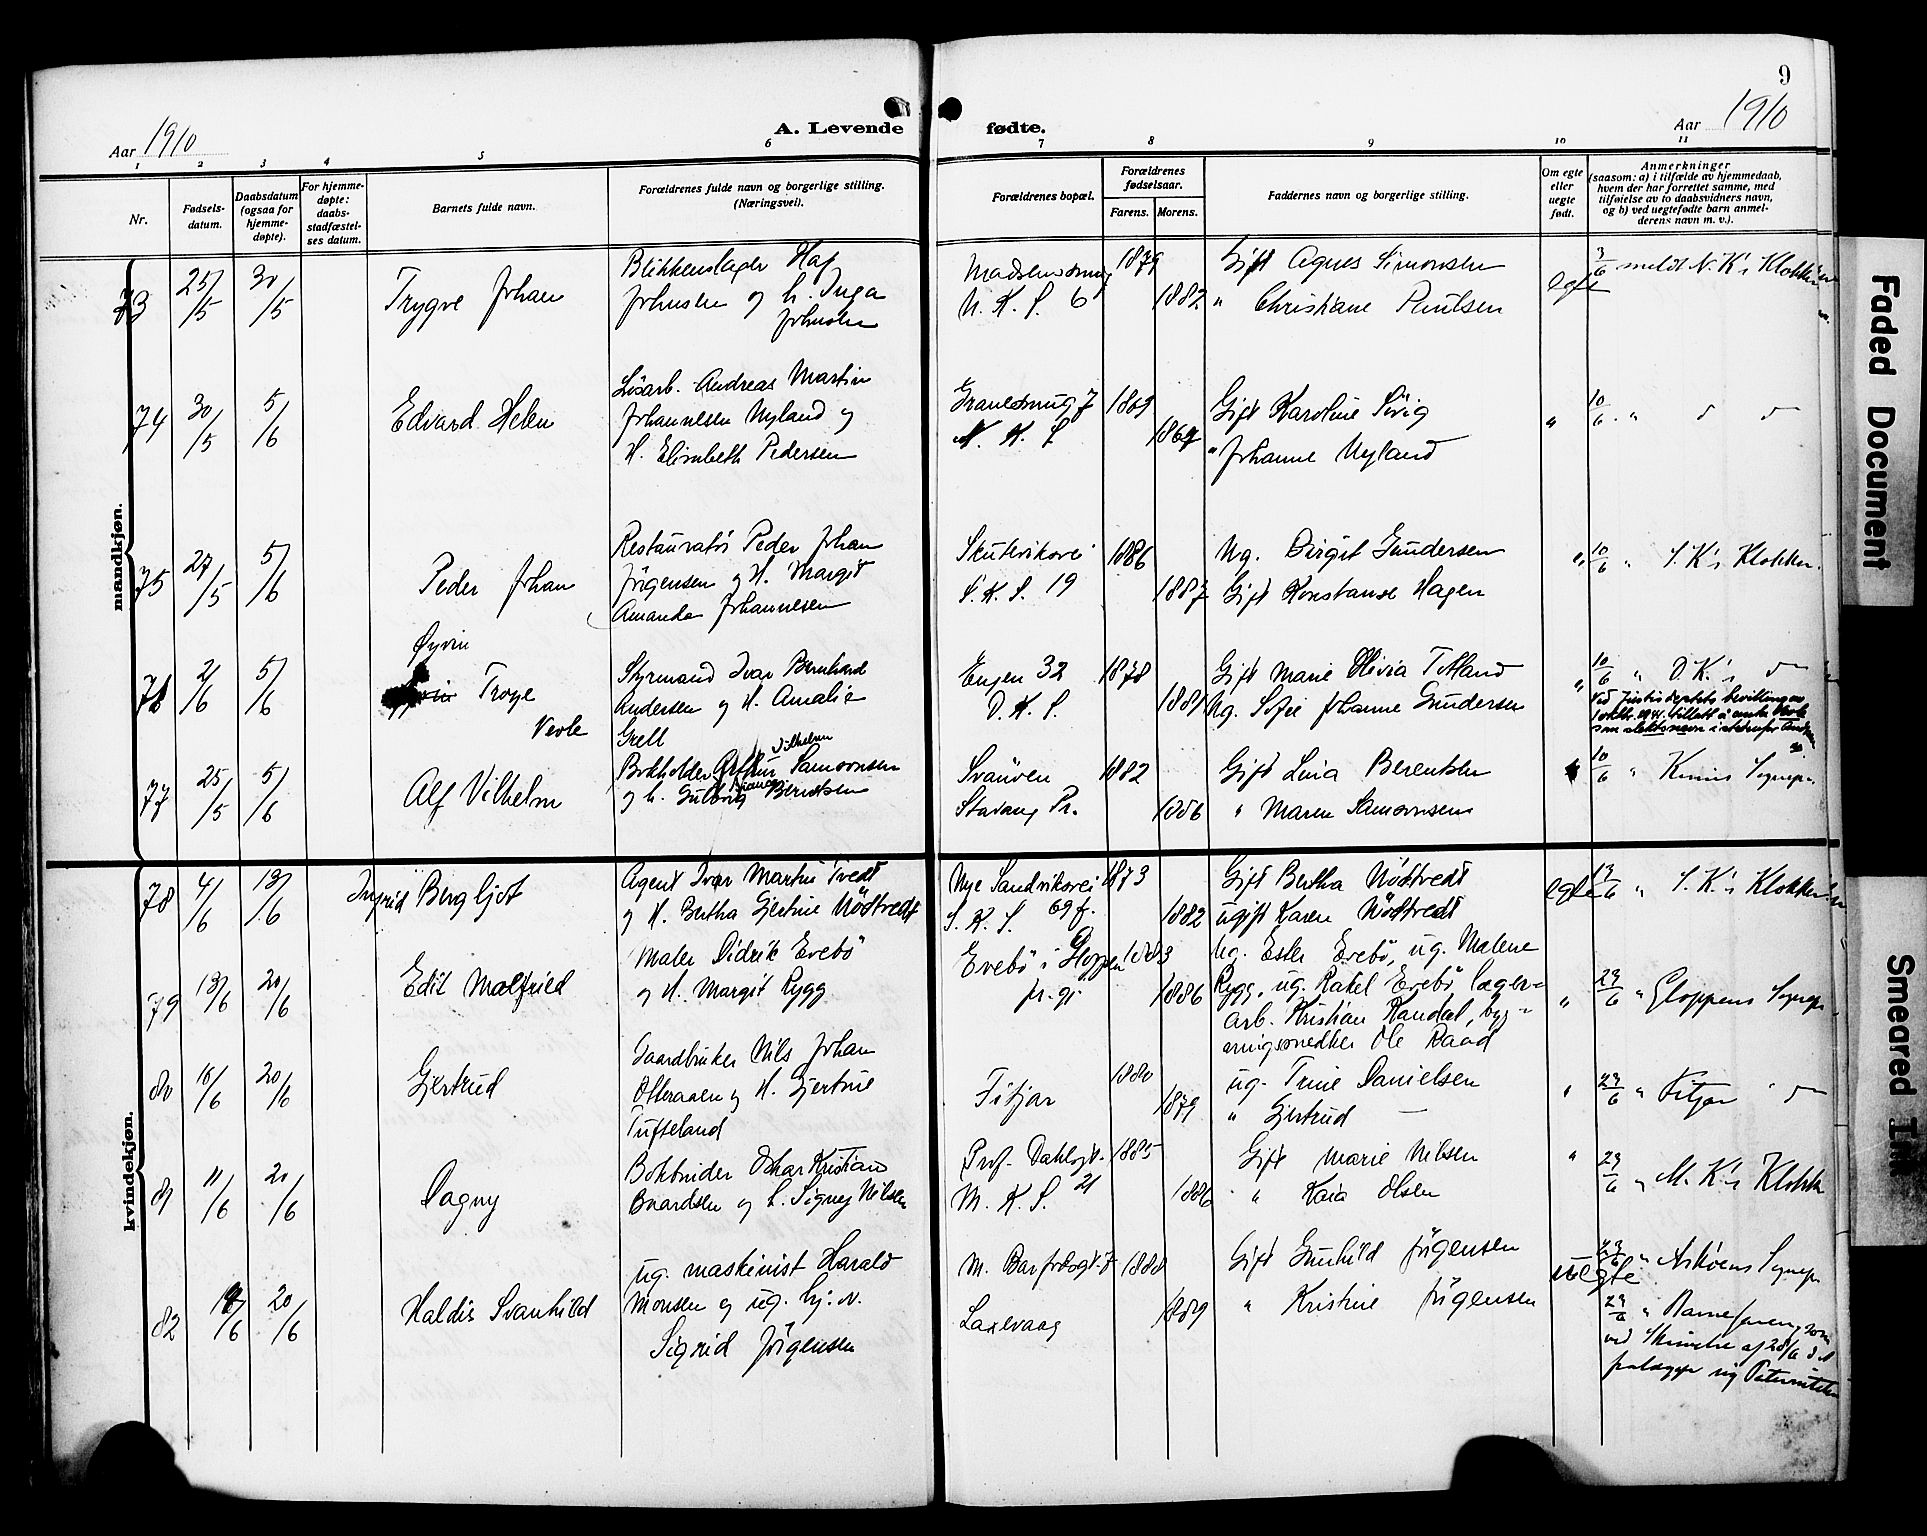 9
Aar 1910
A. Levende
fødte.
Aar 1910
1 2 3 4 5 6 7 8 9 10 11
Nr.
Fødsels-
datum.
Daabsdatum
(ogsaa for
hjemme-
døpte).
For hjemme-
døpte:
daabs-
stadfæstel-
ses datum.
Barnets fulde navn.
Forældrenes fulde navn og borgerlige stilling.
(Næringsvei).
Forældrenes bopæl.
Forældrenes
fødselsaar.
Farens. Morens.
Faddernes navn og borgerlige stilling.
Om egte
eller
uegte
født.
Anmerkninger
(saasom: a) i tilfælde av hjemmedaab,
hvem der har forrettet samme, med
tilføielse av to daabsvidners navn,
og b) ved uegtefødte barn anmel-
derens navn m. v.).
mandkjøn.
73 25/5 30/5
Trygve Johan
Blikkenslager
Johnsen og H. Inga
Johnsen
N. K. S. 6
1879
1882
Gift Agnes Simonsen
" Christiane Paulsen
egte
3/6 meldt N. K's Klokker
74 30/5 5/6
Edvard Helen
Løsarb. Andreas Martin
Johannesen Nyland og
H. Elisabeth Pedersen
N. K. S.
1869
Gift Karoline
" Johanne Nyland
"
10/6 " d d
75 27/5 5/6
Peder Johan
Restauratør Peder Johan
Jörgensen og H. Margit
Amanda Johannesen
Skutevikvei
S. K. S. 19
1886
1887
Ug. Birgit Gundersen
Gift Konstanse Hagen
"
10/6 " S. K's Klokker.
76 2/6 5/6
Øyvin
Troye
Vevle
Styrmand Ivar Bernhard
Andersen og H. Amalie
Grell
Engen 32
D. K. S.
1878
1881
Gift Marie Olivia Totland
Ug. Sofie Johanne Gundersen
"
10/6 " D. K's d
77 25/5 5/6
Alf Vilhelm
Vilhelm
Bokholder Arthur Samsonsen
og H. Gulborg Berntsen
Svanøen
Stavang Pr.
1882
1886
Gift Lina Berentsen
" Maren Samsonsen
10/6 " Kinns Sognepr.
kvindekjøn.
78 4/6 13/6
Ingrid Bergljot
Agent Ivar Martin Tvedt
og H. Bertha Gjertine Nöstvedt
Nye Sandviksvei
S. K. S. 69 f.
1873
1882
Gift Bertha Nöstvedt
ugift Karen Nöstvedt
egte
13/6 " S. K's Klokker
79 13/6 20/6
Edit Malfried
Maler Didrik Evebö
og H. Margit Rygg
Evebö i Gloppen
pr. gj.
1883
1886
Ug. Ester Evebö, ug. Malene
Rygg, ug. Rakel Evebö, lager-
arb. Kristian Kandal, byg-
ningssnedker Ole Raad
"
29/6 " Gloppens Sognepr.
80 20/6
Gjertrud
Gaardbruker Nils Johan
Otteraaen og H. Gjertine
Tufteland
Fitjar
1880
1879
ug. Trine Danielsen
" Gjertrud —
"
29/6 " Fitjar " d
81 11/6 20/6
Dagny
Bokbinder Oskar Kristian
Baardsen og H. Signy Nilsen
Prof. Dahlsgt.
M. K. S. 21
1885
1886
Gift Marie Nilsen
" Kaia Olsen
"
29/6 " M. K's Klokker
82 20/6
Haldis Svanhild
ug. maskinist Harald
Monsen og ug. hj. v.
Sigrid Jörgensen
Laxevaag
1888
1889
Gift Gunhild Jörgensen
" Kristine Jörgensen
uegte
29/6 " Askøens Sognepr.
29/6 " Barnefaren, som
ved Skrivelse af 28/6
Faded Document
Smeared Ink